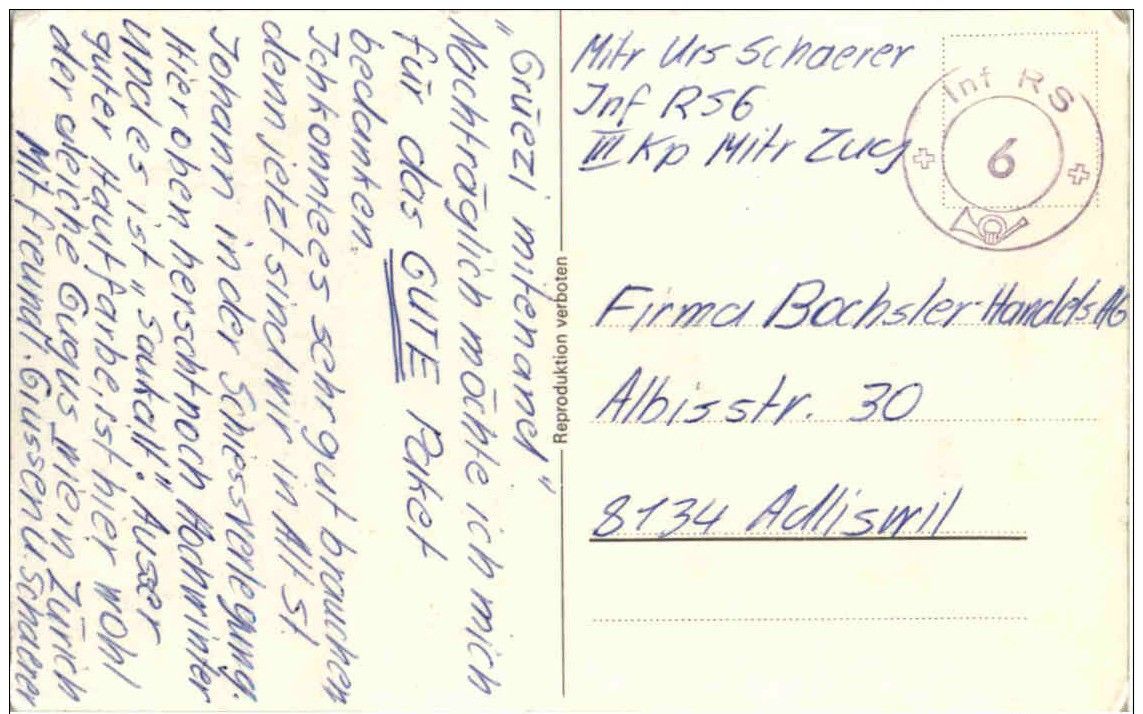 „Grüezi mitenand"
Nachträglich möchte ich mich
für das GUTE Paket
bedanken.
Ich konnte es sehr gut brauchen
denn jetzt sind wir in Alt St.
Johann in der Schiessverlegung.
Hier oben herscht noch Hochwinter
und es ist „Saukalt". Ausser
guter Hautfarbe, ist hier wohl
der gleiche Gugus wie in Zürich
Mit freundl. Grüssen U. Schaerer
Reproduktion verboten
Mitr Urs Schaerer
Inf RS6
III Kp Mitr Zug
Inf RS
6
Firma Bachsler-Handels AG
Albisstr. 30
8134 Adliswil